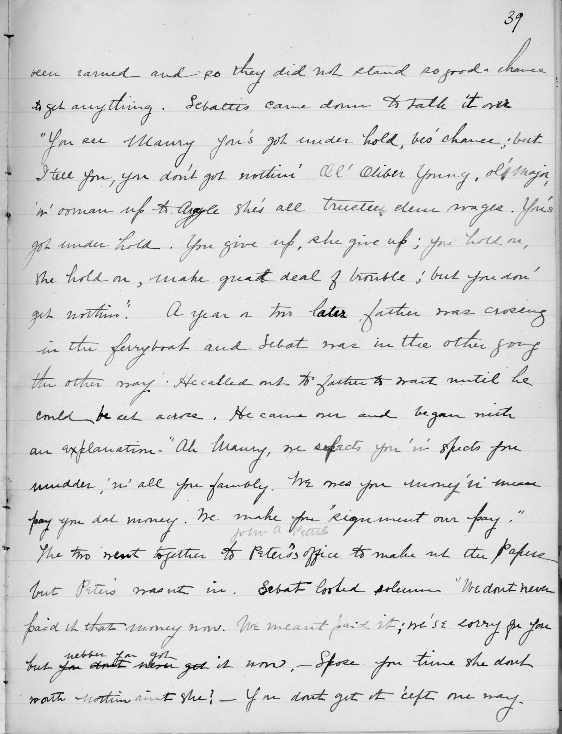 39
been earned and so they did not stand so good a chance
to get anything. Sebattis came down to talk it over
"You see Maury you's got under hold, bes' chance; but
I tell you, you don't got nothin' Ol' Oliber Young, ol' Major,
'n' ooman up to Argyle she's all trustees dem wages. You's
got under hold. You give up, she give up; you hold on,
she hold on, make great deal of trouble; but you don'
get nothin'." A year or two later father was crossing
in the ferryboat and Sebat was in the other going
the other way. He called out to father to wait until he
could be set across. He came over and began with
an explanation - "Ah Maury, we spects you 'n' spects you
mudder, 'n' all you fambly. We owes you money 'n' mean
pay you dat money. We make you 'signment our pay."
John A Peters
The two went together to Peters's office to make out the papers
but Peters wasnt in. Sebat looked solemn "We dont never
paid it that money now. We meant paid it; we'se sorry for you
nebber you got
but you dont never get it now. - Spose you time she dont
worth nothin aint she? - You dont get it 'cept one way.